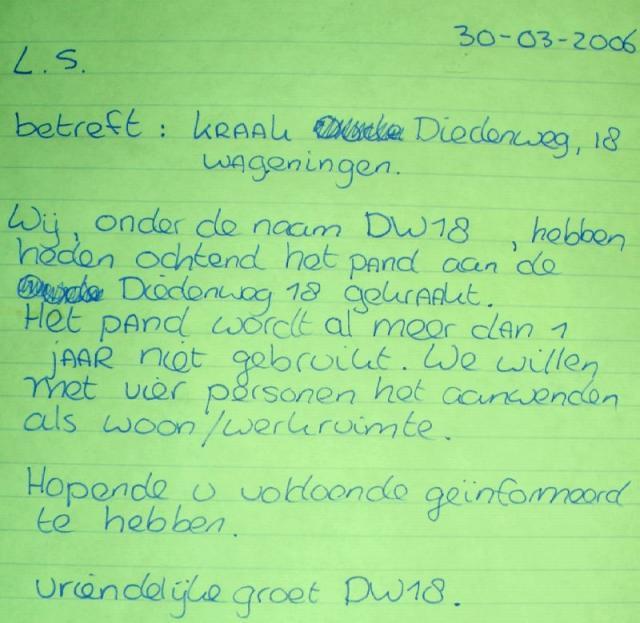 30-03-2006
L.S.
betreft : KRAAK Diedenweg, 18
WAgeningen.
Wij, onder de naam DW18 , hebben
heden ochtend het pand aan de
Diedenweg 18 gekraakt.
Het pand wordt al meer dan 1
jaar niet gebruikt. We willen
met vier personen het aanwenden
als woon/werkruimte.
Hopende u voldoende geïnformeerd
te hebben.
vriendelijke groet DW18.